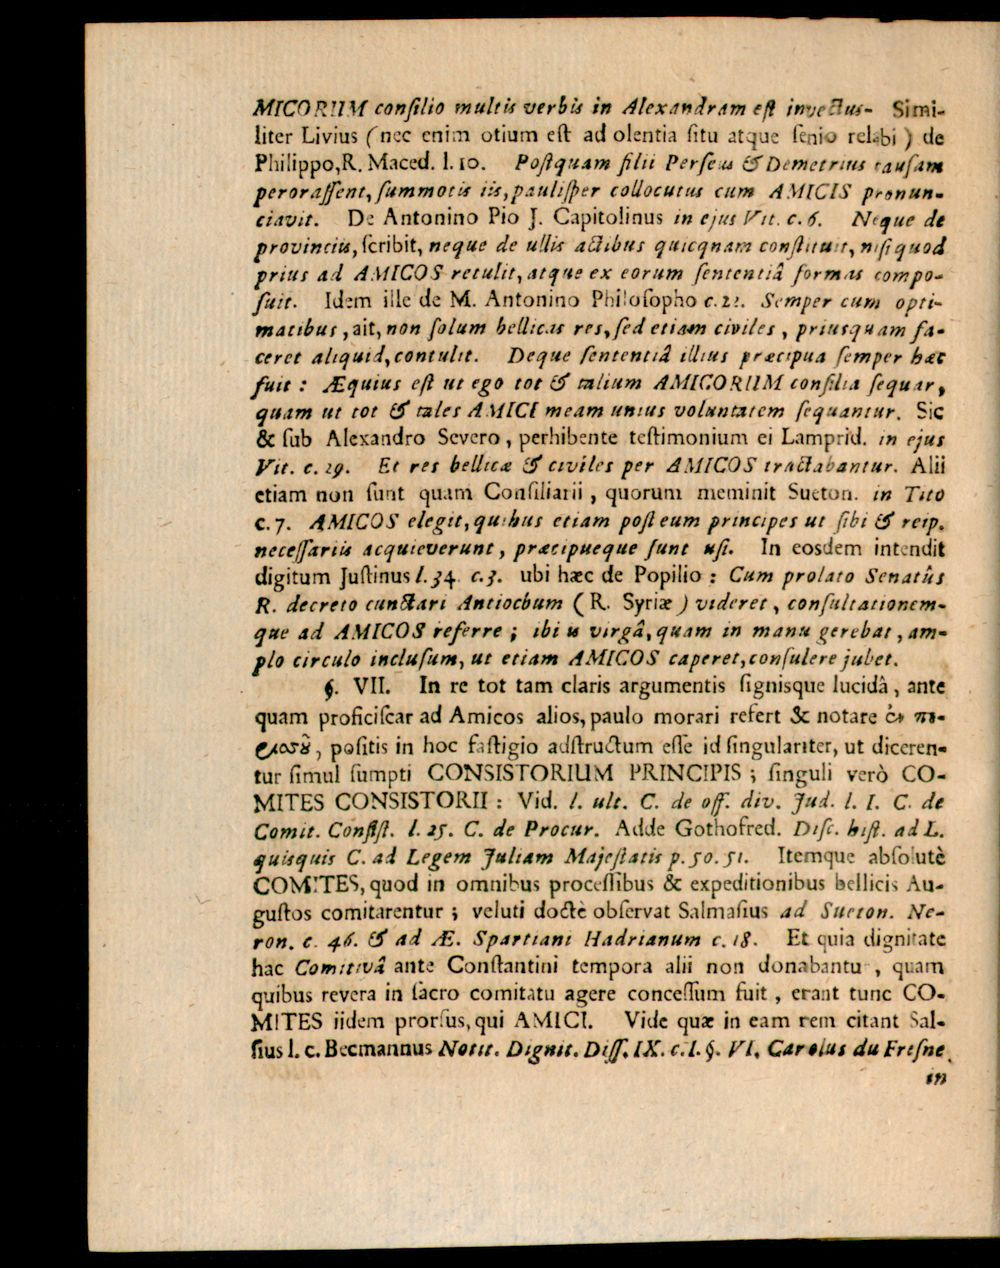 MICORUM conſilio multis verbis in Alexandram eſt invectus- Simi-
liter Livius (nec enim otium eſt ad olentia ſitu atque ſenio relabi) de
Philippo, R. Maced. l. 10. Poſtquam filii Perſeus & Demetrius cauſam
peroraſſent, ſummotis iis, pauliſper collocutus cum AMICIS pronun-
ciavit. De Antonino Pio J. Capitolinus in ejus Vit. c. 6. Neque de
provinciis, ſcribit, neque de ullis actibus quicqnam conſtituit, niſi quod
prius ad AMICOS retulit, atque ex eorum ſententiâ formas compo-
ſuit. Idem ille de M. Antonino Philoſopho c. 22. Semper cum opti-
matibus, ait, non ſolum bellicas res, ſed etiam civiles, priusquam fa-
ceret aliquid, contulit. Deque ſententiâ illius præcipua ſemper hæc
fuit: Æquius eſt ut ego tot & talium AMICORUM conſilia ſequar,
quam ut tot & tales AMICI meam unius voluntatem ſequantur. Sic
& ſub Alexandro Severo, perhibente teſtimonium ei Lamprid. in ejus
Vit. c. 29. Et res bellicæ & civiles per AMICOS tractabantur. Alii
etiam non ſunt quam Conſiliarii, quorum meminit Sueton. in Tito
c. 7. AMICOS elegit, quibus etiam poſt eum principes ut ſibi & reip.
neceſſariis acquieverunt, præcipueque ſunt uſi. In eosdem intendit
digitum Juſtinus l. 34. c. 3. ubi hæc de Popilio: Cum prolato Senatûs
R. decreto cunctari Antiochum (R. Syriæ) videret, conſultationem-
que ad AMICOS referre; ibi is virgâ, quam in manu gerebat, am-
plo circulo incluſum, ut etiam AMICOS caperet, conſulere jubet.
§. VII. In re tot tam claris argumentis ſignisque lucidâ, ante
quam proficiſcar ad Amicos alios, paulo morari refert & notare ἐν πα-
ρόδῳ, poſitis in hoc faſtigio adſtructum eſſe id ſingulariter, ut diceren-
tur ſimul ſumpti CONSISTORIUM PRINCIPIS; ſinguli verò CO-
MITES CONSISTORII: Vid. l. ult. C. de off. div. Jud. l. I. C. de
Comit. Conſiſt. l. 25. C. de Procur. Adde Gothofred. Diſc. hiſt. ad L.
quisquis C. ad Legem Juliam Majeſtatis p. 50. 51. Itemque abſolutè
COMITES, quod in omnibus proceſſibus & expeditionibus bellicis Au-
guſtos comitarentur; veluti doctè obſervat Salmaſius ad Sueton. Ne-
ron. c. 46. & ad Æ. Spartiani Hadrianum c. 18. Et quia dignitate
hac Comitivâ ante Conſtantini tempora alii non donabantur, quam
quibus revera in ſacro comitatu agere conceſſum fuit, erant tunc CO-
MITES iidem prorſus, qui AMICI. Vide quæ in eam rem citant Sal-
ſius l. c. Becmannus Notit. Dignit. Diſſ. IX. c. I. §. VI. Carolus du Freſne
in